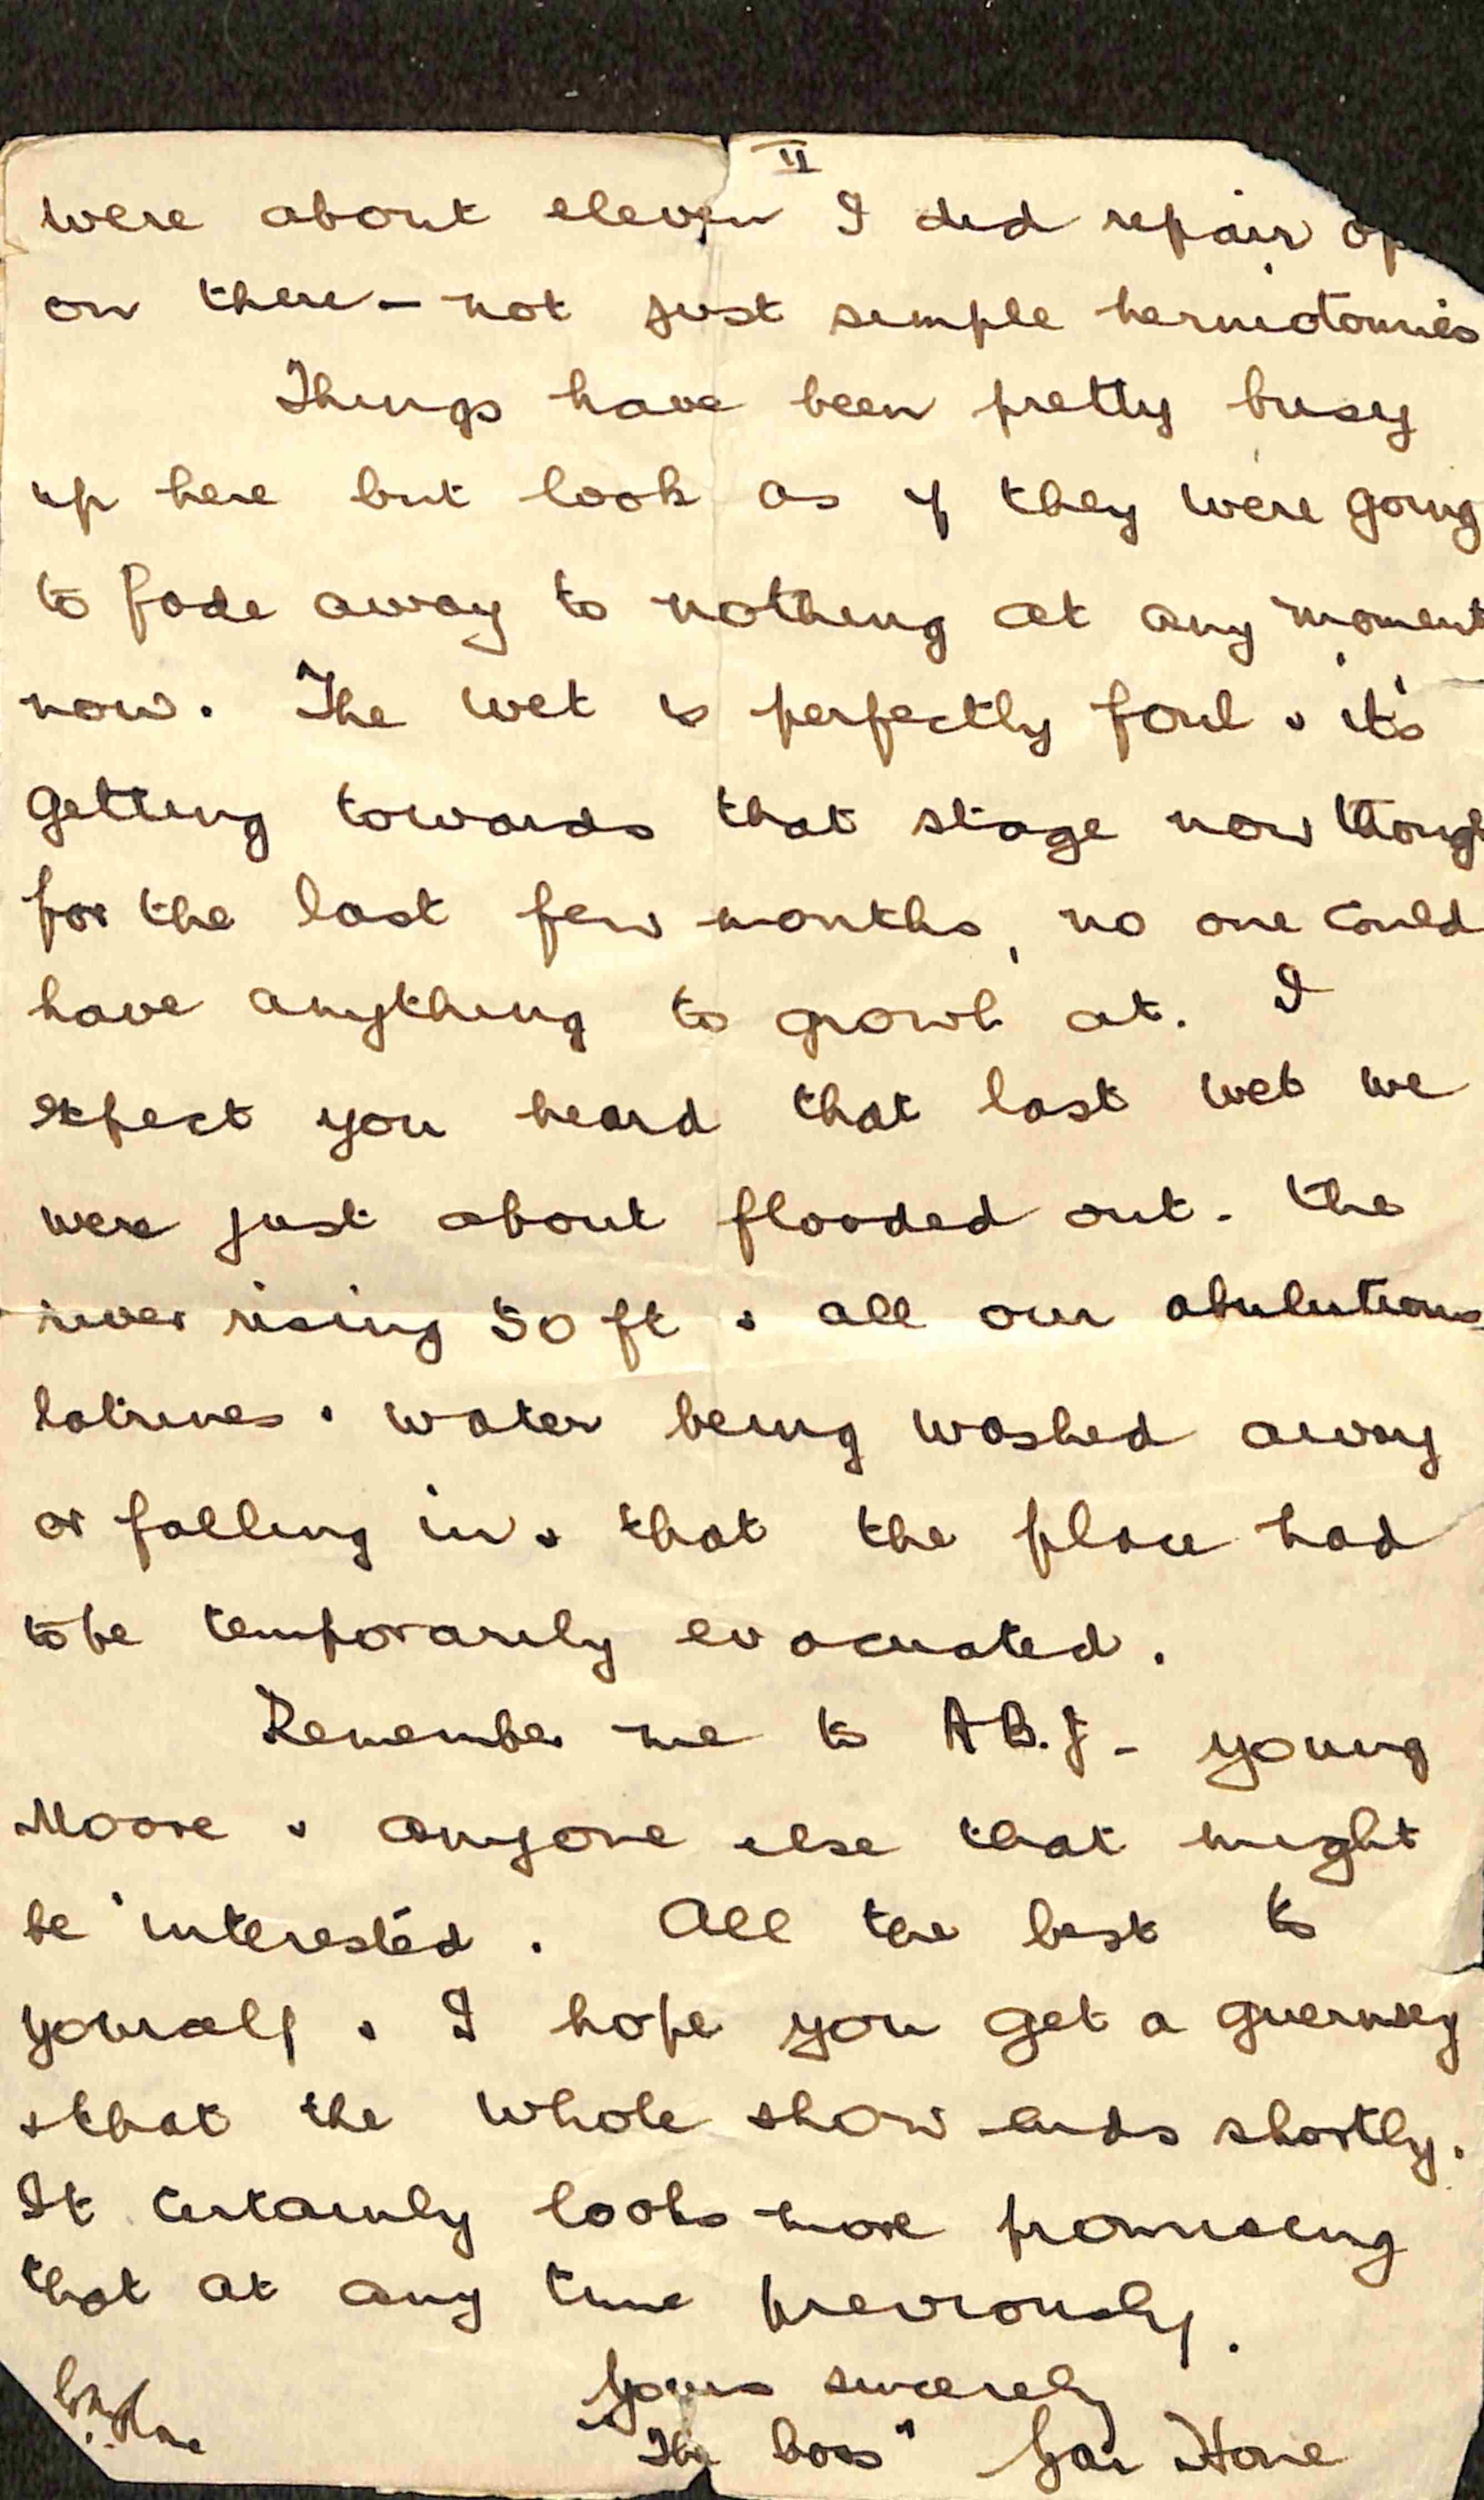 II
were about eleven I did repair op
on there - not just simple herniotomies
Things have been pretty busy
up here but look as if they were going
to fade away to nothing at any moment
now. The wet is perfectly foul & it's
getting towards that stage now though
for the last few months, no one could
have anything to growl at. I
expect you heard that last wet we
were just about flooded out - the
river rising 50 ft & all our abulutions
latrines & water being washed away
or falling in & that the place had
to be temporarily evacuated.
Remember me to A.B.J - young
Moore & anyone else that might
be interested. All the best to
yourself & I hope you get a guernsey
& that the whole show ends shortly.
It certainly looks more promising
that at any time previously.
Yours sincerely
"The boss" Hone